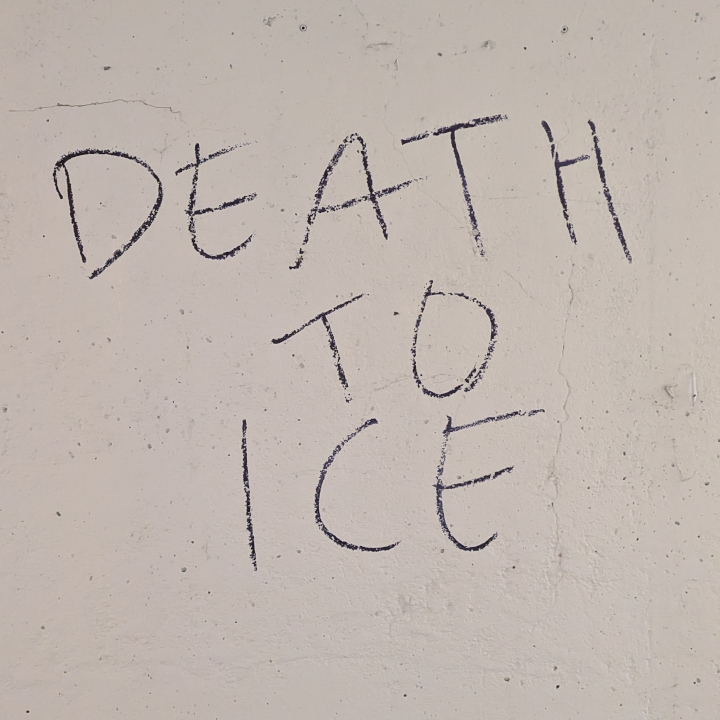 DEATH
TO
ICE